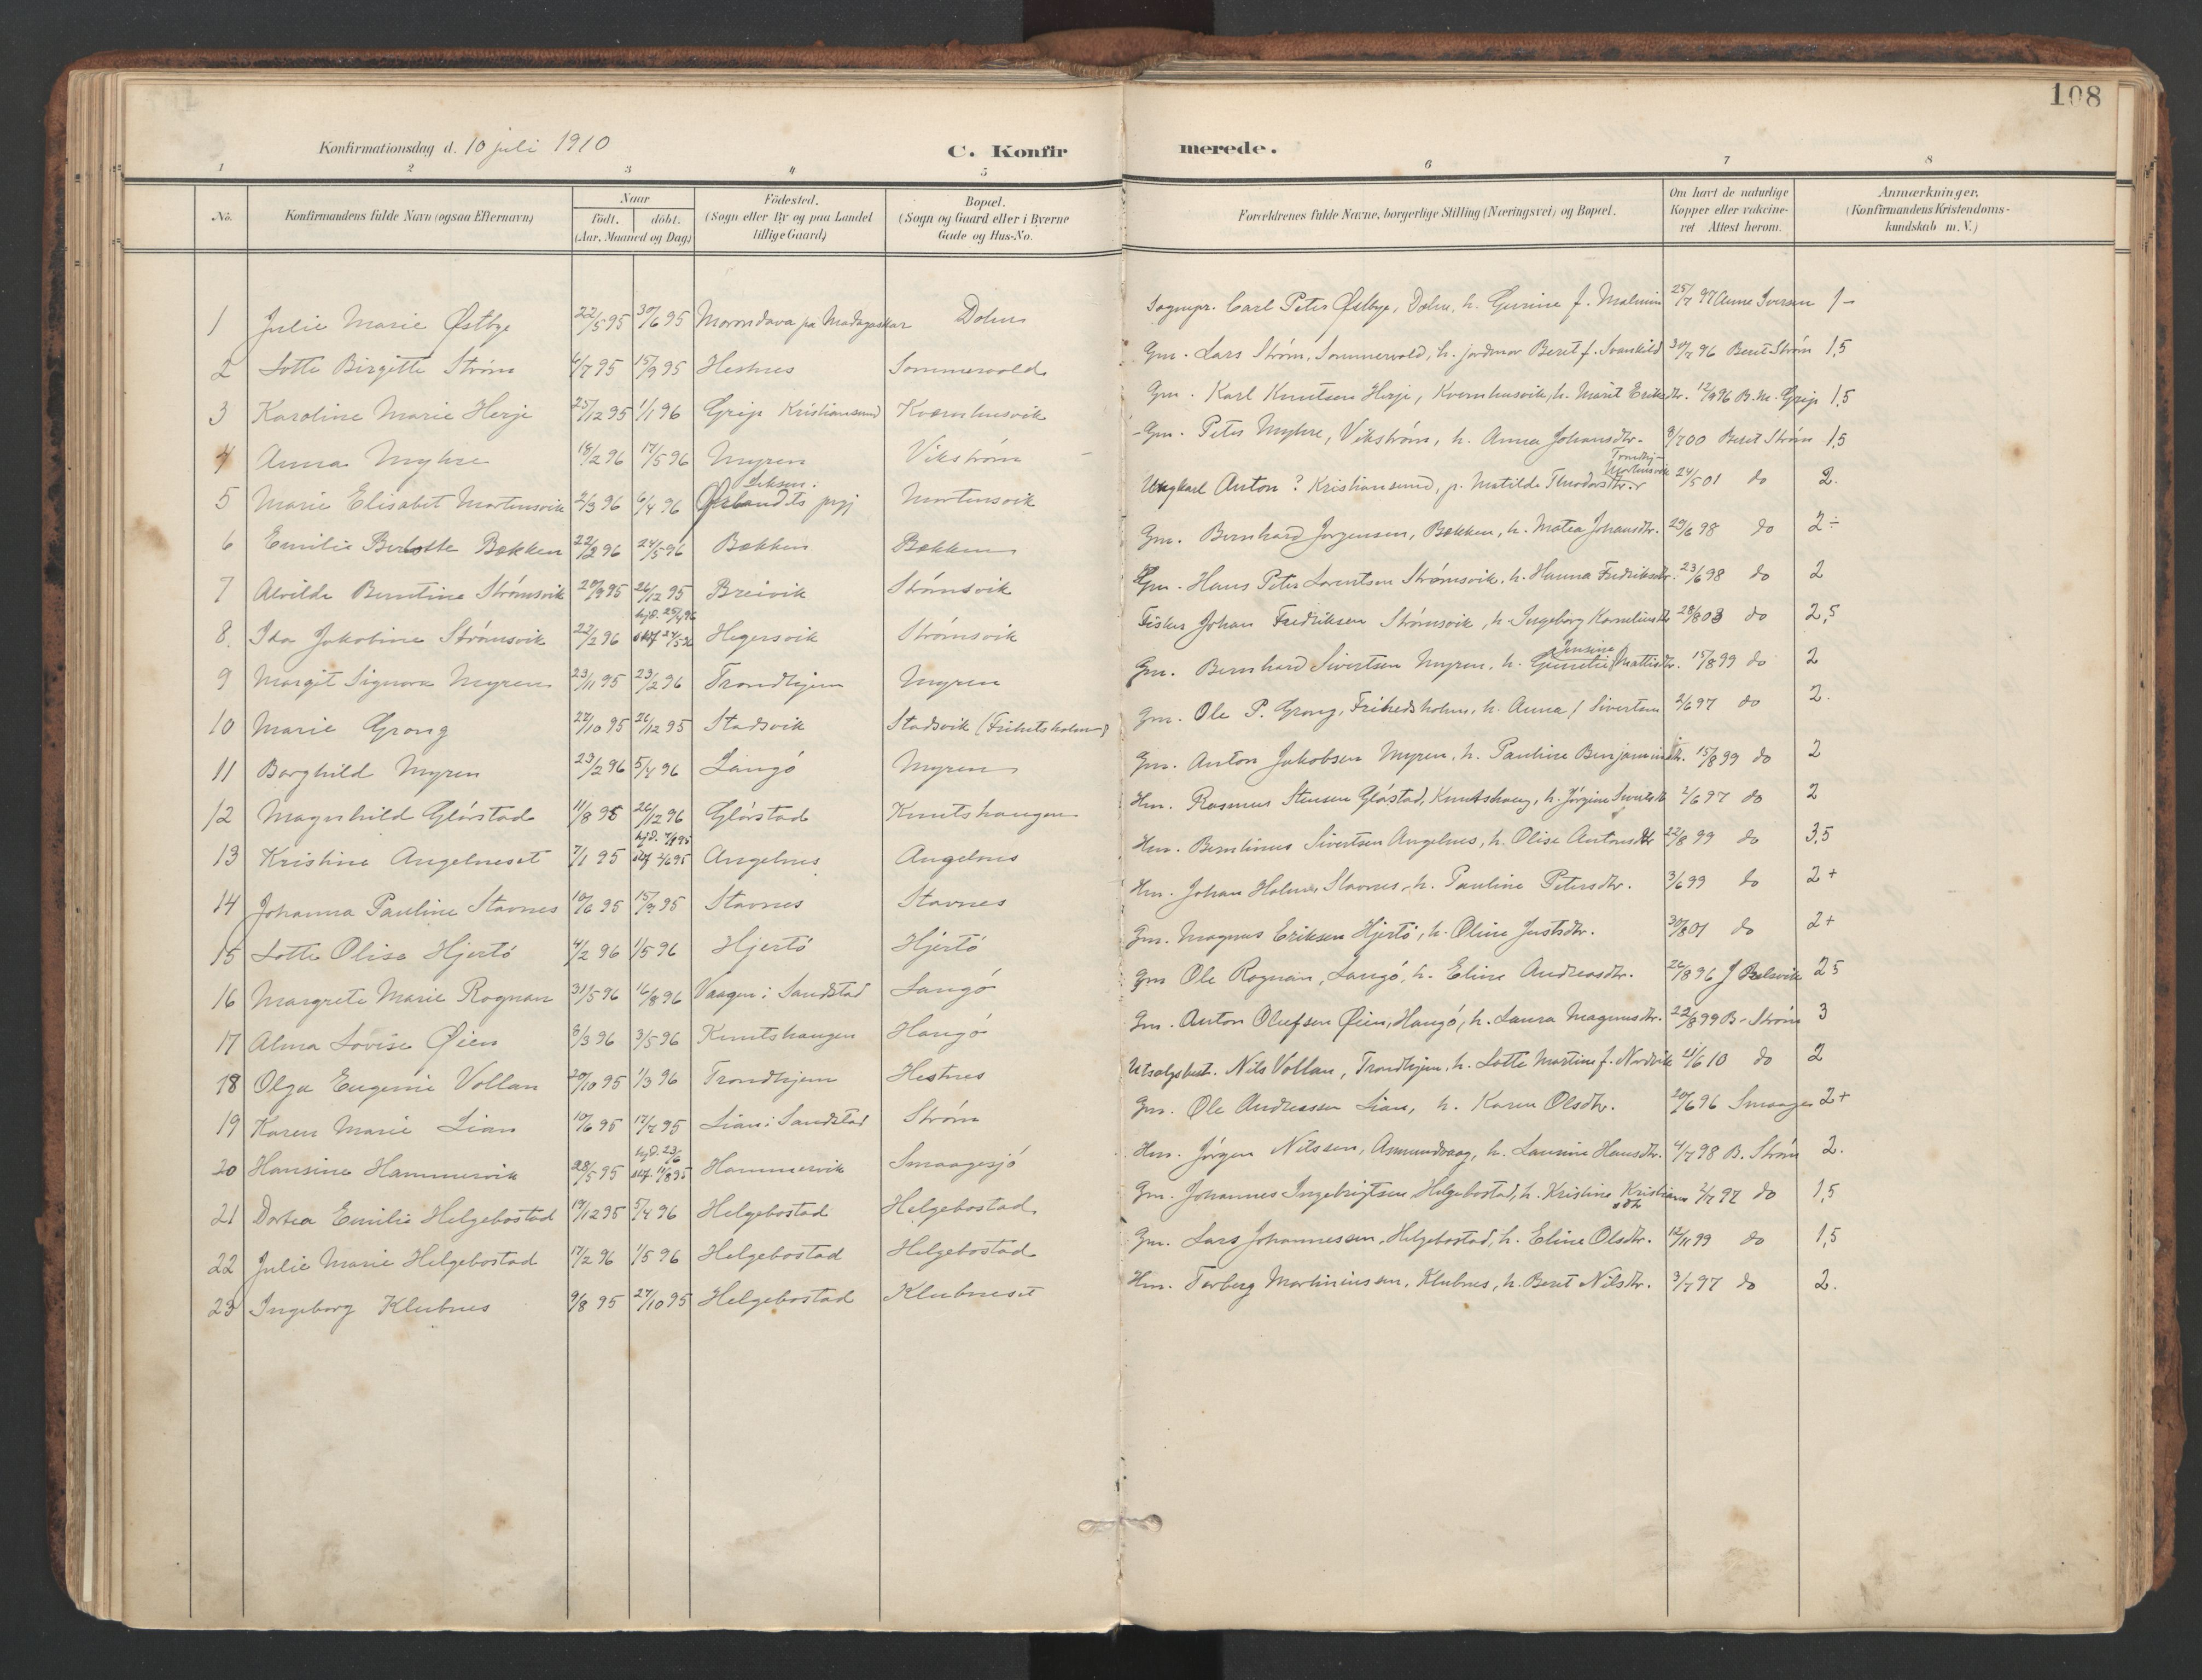 108
Konfirmationsdag d. 10 juli 1910
C. Konfirmerede.
1 2 3 4 5 6 7 8
No. Konfirmandens fulde Navn (ogsaa Efternavn) Naar Födt. döbt. (Aar, Maaned og Dag) Födested. (Sogn eller By og paa Landet tillige Gaard) Bopæl. (Sogn og Gaard eller i Byerne Gade og Hus-No. Forældrenes fulde Navne, borgerlige Stilling (Næringsvei) og Bopæl. Om havt de naturlige Kopper eller vakcineret Attest herom. Anmærkninger. (Konfirmandens Kristendomskundskab m. V.)
1 Julie Marie Østbye 22/5 95 30/6 95 Morondava på Madagaskar Dolm Sognepr. Carl Peter Østbye, Dolm, h. Gurine f. Malmin 25/7 97 Anne Iversen 1-
2 Lotte Birgitte Strøm 4/7 95 15/9 95 Hestnes Sommervold Gm. Lars Strøm, Sommervold, h. jordmor Beret f. Svankild 30/7 96 Beret Strøm 1,5
3 Karoline Marie Herje 25/12 95 1/1 96 Grip Kristiansund Kvernhusvik Gm. Karl Knutsen Herje, Kvernhusvik, h. Marit Eriksdtr. 12/9 96 B. M. Grip 1,5
4 Anna Myhre 18/2 96 17/5 96 Myren Vikstrøm Gm. Peter Myhre, Vikstrøm, h. Anna Johansdtr. 8/7 00 Beret Strøm 1,5
5 Marie Elisabet Martensvik 2/3 96 6/4 96 Ørlandets prgj Martensvik Ungkarl Anton ? Kristiansund, p. Matilde Theodorsdtr. Martensvik 24/5 01 do 2.
6 Emilie Berlotte Bækken 22/2 96 24/5 96 Bækken Bækken Gm. Bernhard Jørgensen, Bækken, h. Matea Johansdtr. 29/6 98 do 2÷
7 Alvilde Berntine Strömsvik 20/9 95 26/12 95 Breivik Strömsvik Gm. Hans Peter Lorentsen Strömsvik, h. Hanna Fredriksdtr. 23/6 98 do 2
8. Ida Jakobine Strömsvik 22/2 96 hjd. 25/2 96 stf 24/5 96 Hegersvik Strömsvik Fisker Johan Fredriksen Strömsvik, h. Ingeborg Korneliusdtr 28/8 03 do 2,5
9 Margit Signora Myren 23/11 95 23/2 96 Trondhjem Myren Gm. Bernhard Sivertsen Myren, h. Jensine Mattisdtr. 15/8 99 do 2
10 Marie Grong 27/10 95 26/12 95 Stadsvik Stadsvik (Frihetsholmen) Gm. Ole P. Grong, Frihedsholm, h. Anna f Sivertsen 2/6 97 do 2.
11 Borghild Myren 23/2 96 5/4 96 Langö Myren Gm. Anton Jakobsen Myren, h. Pauline Benjaminsdtr. 15/8 99 do 2
12 Magnhild Glörstad 11/8 95 26/12 96 Glörstad Knutshaugen Hm. Rasmus Stensen Glöstad, Knutshaug, h. Jörgine Sivertsdtr 2/6 97 do 2
13 Kristine Angelneset 7/1 95 hjd. 7/1 95 stf 2/6 95 Angelnes Angelnes Hm. Berntinus Sivertsen Angelnes, h. Olise Antonsdtr 22/8 99 do 3,5
14 Johanna Pauline Stavnes 10/6 95 15/9 95 Stavnes Stavnes Hm. Johan Holmer Stavnes, h. Pauline Petersdtr. 3/6 99 do 2+
15 Lotte Olise Hjertö 4/2 96 1/5 96 Hjertö Hjertö Gm. Magnus Eriksen Hjertö, h. Oline Justsdtr. 30/8 01 do 2+
16 Margrete Marie Rognan 31/5 96 16/8 96 Vaagen i Sandstad Langö Gm Ole Rognan, Langö, h. Eline Andreasdtr. 26/8 96 J Balsvik 25
17 Alma Lovise Øien 8/3 96 3/5 96 Knutshaugen Haugö Gm. Anton Olufsen Øien, Haugö, h. Laura Magnusdtr. 22/8 99 B. Ström 3
18 Olga Eugenie Vollan 20/10 95 1/3 96 Trondhjem Hestnes Utsalgsbest. Nils Vollan, Trondhjem, h. Lotte Martine f. Nordvik 21/6 10 do 2
19 Karen Marie Lian 10/6 95 17/7 95 Lian i Sandstad Ström Gm. Ole Andreassen Lian, h. Karen Olsdtr. 20/6 96 Smaage 2+
20 Hansine Hammervik 28/5 95 hjd. 23/6 stf. 11/8 95 Hammervik Smaagesjö Hm. Jörgen Nilssen, Asmundvaag, h. Laurine Hansdtr. 4/7 98 B. Ström 2.
21 Dortea Emilie Helgebostad 19/12 95 5/4 96 Helgebostad Helgebostad Gm. Johannes Ingebrigtsen Helgebostad, h. Kristine Kristiansdtr 2/7 97 do 1,5
22 Julie Marie Helgebostad 17/2 96 1/5 96 Helgebostad Helgebostad Gm. Lars Johannessen, Helgebostad, h. Eline Olsdtr. 12/11 99 do 1,5
23 Ingeborg Klubnes 9/8 95 27/10 95 Helgebostad Klubneset Hm. Torberg Martiniussen, Klubnes, h. Beret Nilsdtr. 3/7 97 do 2.